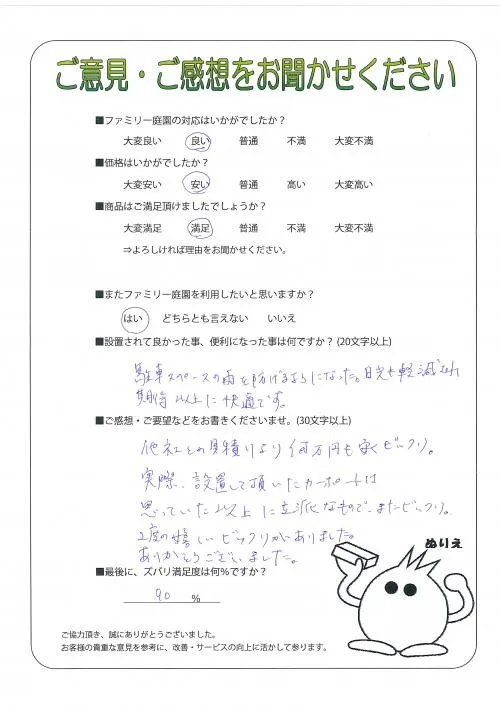 ご意見・ご感想をお聞かせください
■ファミリー庭園の対応はいかがでしたか？
大変良い 良い 普通 不満 大変不満
■価格はいかがでしたか？
大変安い 安い 普通 高い 大変高い
■商品はご満足頂けましたでしょうか？
大変満足 満足 普通 不満 大変不満
⇒よろしければ理由をお聞かせください。
■またファミリー庭園を利用したいと思いますか？
はい どちらとも言えない いいえ
■設置されて良かった事、便利になった事は何ですか？(20文字以上)
駐車スペースの雨を防げるようになった。日光も軽減され
期待以上に快適です。
■ご感想・ご要望などをお書きくださいませ。(30文字以上)
他社との見積りより何万円も安くビックリ。
実際、設置して頂いたカーポートは
思っていた以上に立派なもので、またビックリ。
2度の嬉しいビックリがありました。
ありがとうございました。
ぬりえ
■最後に、ズバリ満足度は何％ですか？
90 ％
ご協力頂き、誠にありがとうございました。
お客様の貴重な意見を参考に、改善・サービスの向上に活かして参ります。